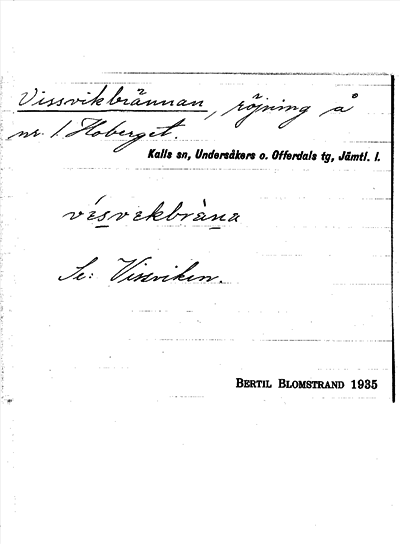 Vissvikbrännan, röjning å
nr. 1. Hoberget.
Kalls sn, Undersåkers o. Offerdals tg, Jämtl. l.
vísvekbràna
Se: Vissviken.
BERTIL BLOMSTRAND 1935